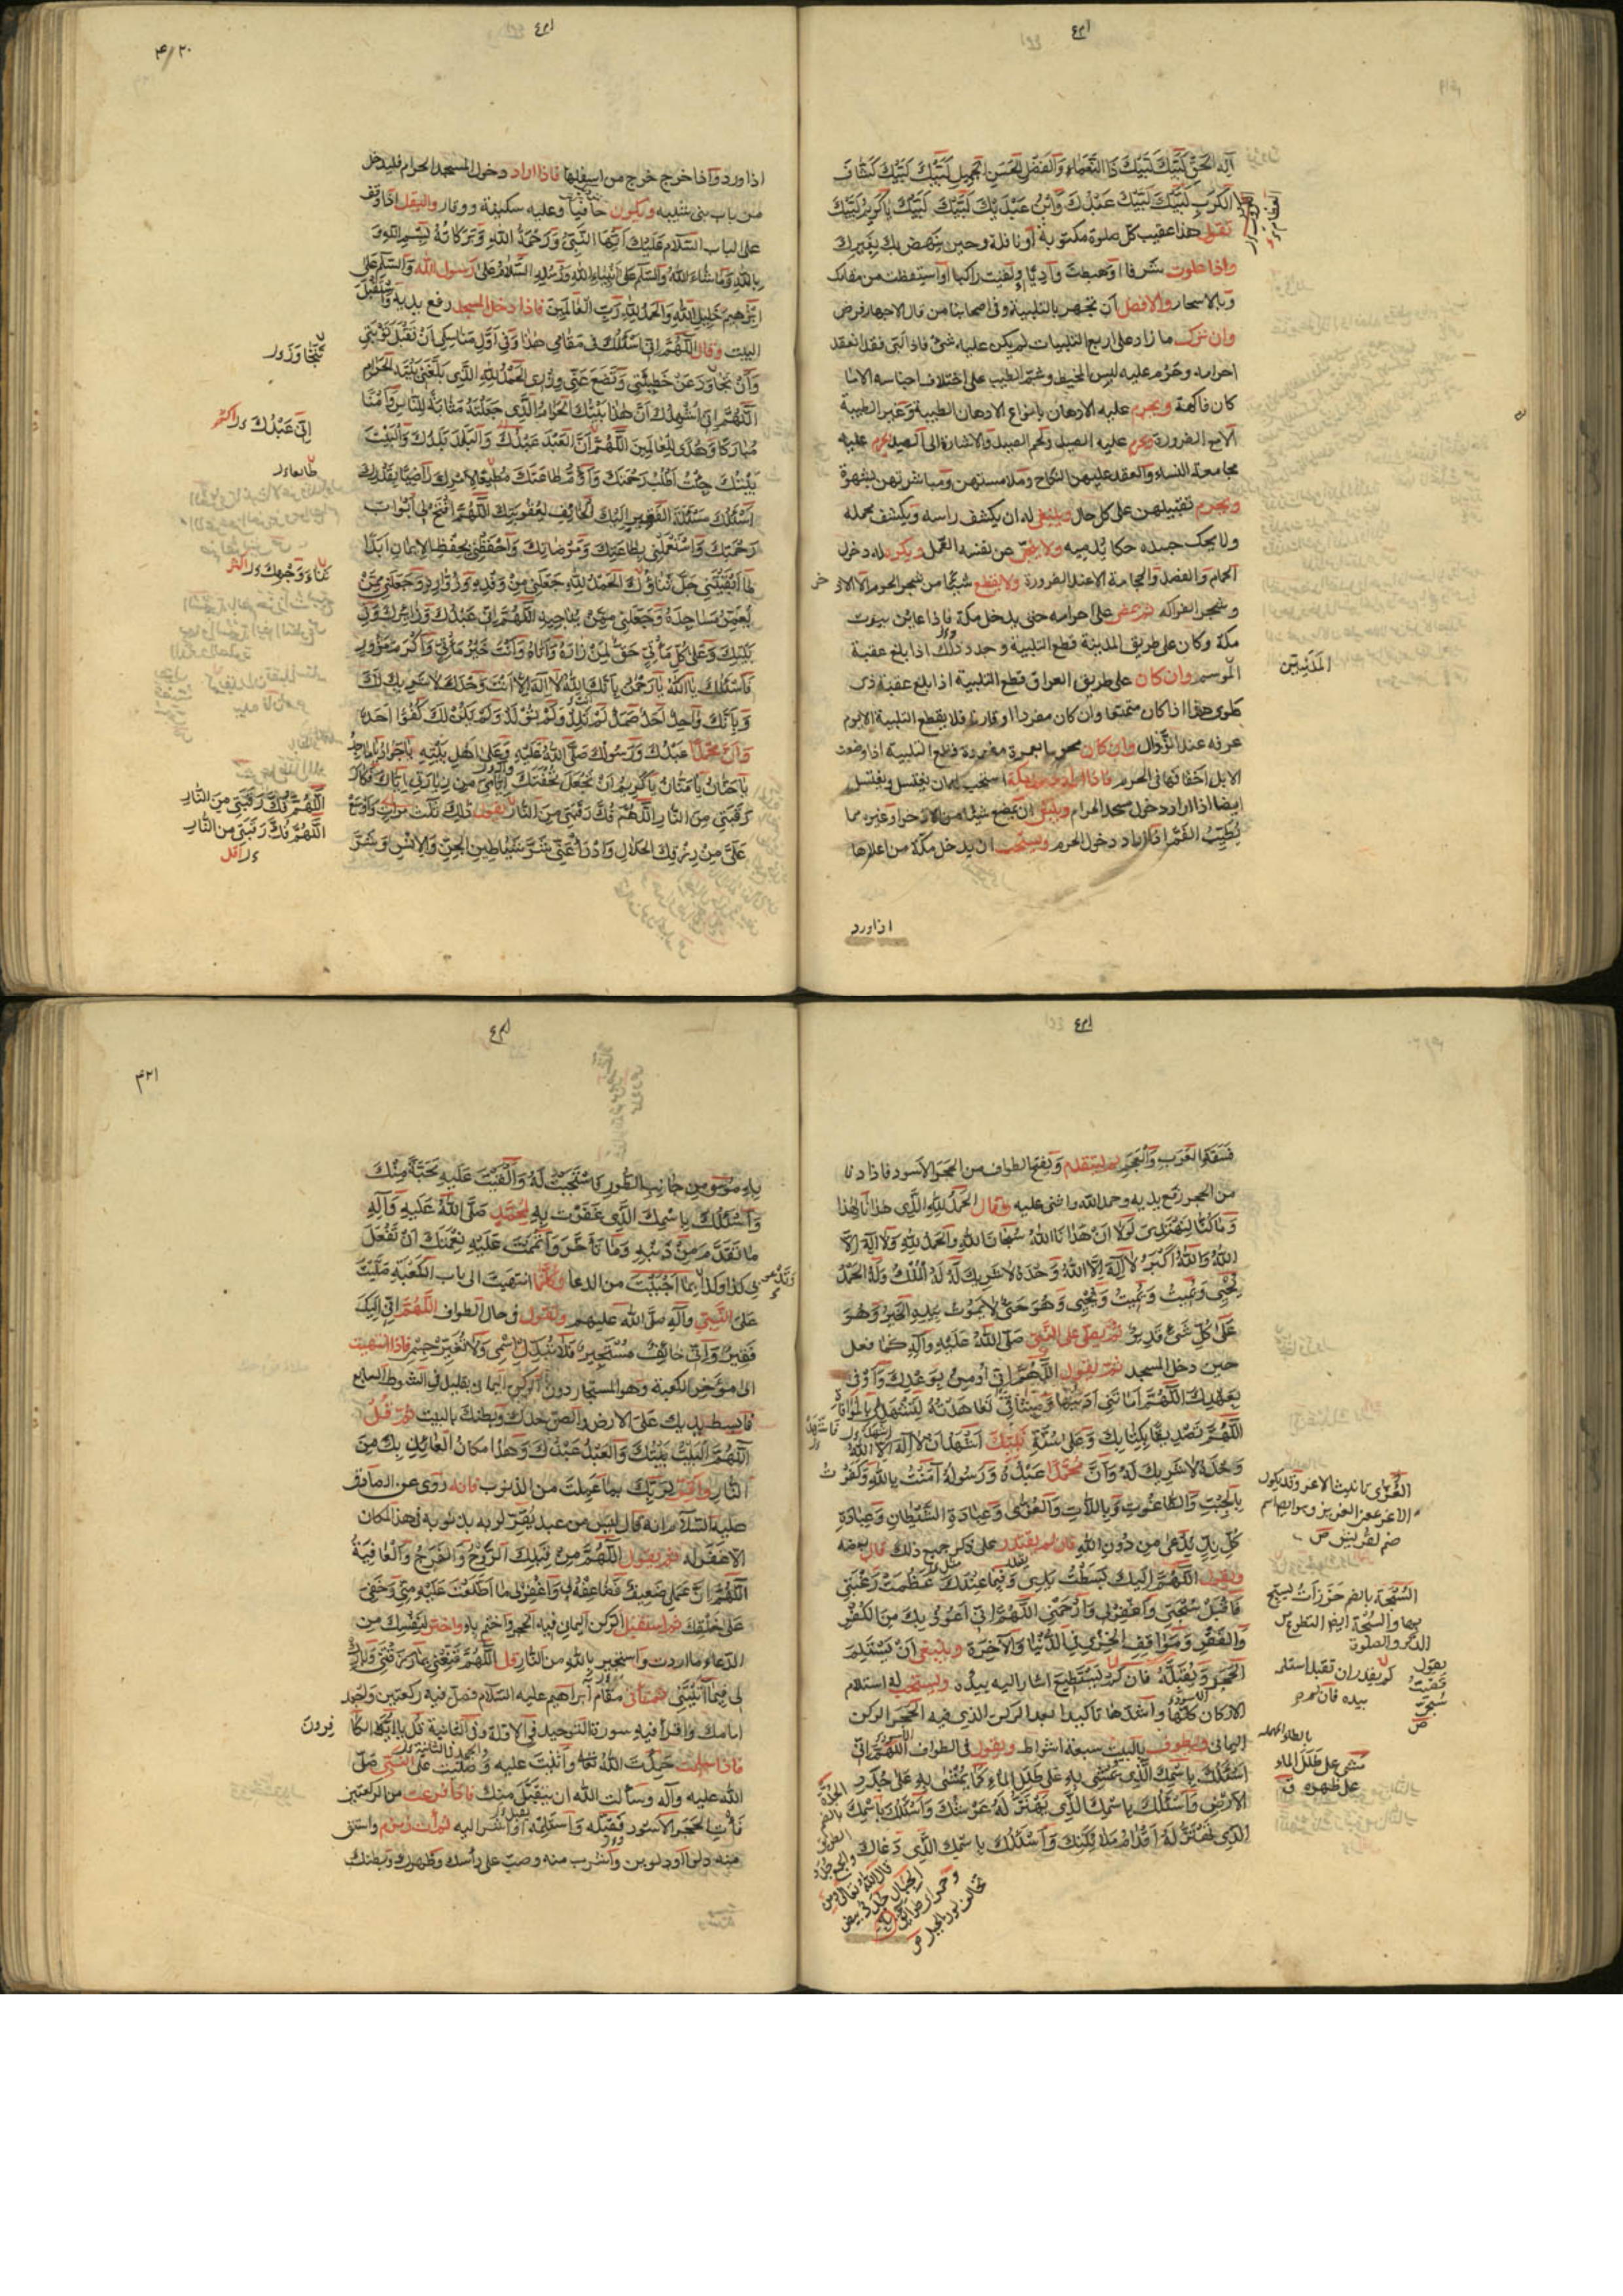 اله الحق لبيك لبيك ذا النعماء والفضل الحسن الجميل لبيك لبيك كشاف
الكرب لبيك لبيك عبدك وابن عبديك لبيك لبيك يا كريم لبيك
تقول هذا عقيب كل صلوة مكتوبة او نافلة وحين ينهض بك بعيرك
واذا علوت شرفا او هبطت واديا او لقيت راكبا او استيقظت من منامك
وبالاسحار والافضل ان تجهر بالتلبية وفي اصحابنا من قال الاجهار فرض
وان ترك ما زاد على اربع التلبيات لم يكن عليه شئ فاذا لبى فقد انعقد
احرامه وحرم عليه لبس المخيط وشم الطيب على اختلاف اجناسه الا ما
كان فاكهة ويحرم عليه الادهان بانواع الادهان الطيبة وغير الطيبة
الا مع الضرورة ويحرم عليه الصيد ولحم الصيد والاشارة الى الصيد ويحرم عليه
مجامعة النساء والعقد عليهن للنكاح وملامستهن ومباشرتهن بشهوة
ويحرم تقبيلهن على كل حال وينبغي له ان يكشف راسه ويكشف محمله
ولا يحك جسده حكا يدميه ولا ينحى عن نفسه القمل ويكره له دخول
الحمام والفصد والحجامة الا عند الضرورة ولا يقطع شيئا من شجر الحرم الا الاذخر
وشجر الفواكه ثم يمضي على احرامه حتى يدخل مكة فاذا عاين بيوت
مكة وكان على طريق المدينة قطع التلبية وحد ذلك اذا بلغ عقبة
المدنيين
وان كان على طريق العراق قطع التلبية اذا بلغ عقبة ذى
طوى هذا اذا كان متمتعا وان كان مفردا او قارنا فلا يقطع التلبية الا يوم
عرفة عند الزوال وان كان محرما بعمرة مفردة قطع التلبية اذا وضعت
الابل اخفافها في الحرم فاذا اراد دخول مكة استحب له ان يغتسل ويغتسل
ايضا اذا اراد دخول مسجد الحرام وينبغي ان يمضغ شيئا من الاذخر او غيره مما
يطيب الفم اذا اراد دخول الحرم ويستحب ان يدخل مكة من اعلاها
اذا ورد
اذا ورد واذا خرج خرج من اسفلها فاذا اراد دخول المسجد الحرام فليدخل
من باب بنى شيبة ويكون حافيا وعليه سكينة ووقار وليقل اذا وقف
على الباب السلام عليك ايها النبي ورحمة الله وبركاته بسم الله و
بالله وما شاء الله والسلم على انبياء الله ورسله السلام على رسول الله والسلم على
ابرهيم خليل الله والحمد لله رب العالمين فاذا دخل المسجد رفع يديه واستقبل
البيت وقال اللهم انى اسئلك في مقامى هذا وفى اول مناسكى ان تقبل توبتى
وان تجاوز عن خطيئتي وتضع عني وزرى الحمد لله الذى بلغنى بيته الحرام
اللهم انى اشهدك ان هذا بيتك الحرام الذى جعلته مثابة للناس وامنا
مباركا وهدى للعالمين اللهم ان العبد عبدك والبلد بلدك والبيت
بيتك جئت اطلب رحمتك واؤم طاعتك مطيعا لامرك راضيا بقدرك
اسئلك مسئلة الفقير اليك الخائف لعقوبتك اللهم افتح لى ابواب
رحمتك واستعملنى بطاعتك ومرضاتك واحفظنى بحفظ الايمان ابدا
ما ابقيتنى جل ثناؤك الحمد لله الذى جعلنى من وفده وزواره وجعلنى ممن
يعمر مساجده وجعلنى ممن يناجيه اللهم انى عبدك وزائرك وفي
بيتك وعلى كل مأتى حق لمن زاره واتاه وانت خير مأتى واكرم مزور
فاسئلك يا الله يا رحمن بانك الله لا اله الا انت وحدك لا شريك لك
وبانك واحد احد صمد لم تلد ولم تولد ولم يكن لك كفوا احد
وان محمدا عبدك ورسولك صلى الله عليه وعلى اهل بيته يا جواد يا ماجد
يا حنان يا منان يا كريم ان تجعل تحفتك اياى من زيارتى اياك فكاك
رقبتى من النار اللهم فك رقبتى من النار يقول ذلك ثلث مرات واوسع
على من رزقك الحلال وادرأ عنى شر شياطين الجن والانس وشر
تتجاوز ور
انى عبدك
طايعا ور
اللهم فك رقبتى من النار
اللهم فك رقبتى من النار
فسقة العرب والعجم ثم ليتقدم ويفتح الطواف من الحجر الاسود فاذا دنا
من الحجر رفع يديه وحمد الله واثنى عليه وقال الحمد لله الذى هدانا لهذا
وما كنا لنهتدى لولا ان هدانا الله سبحان الله والحمد لله ولا اله الا
الله والله اكبر لا اله الا الله وحده لا شريك له له الملك وله الحمد
يحيى ويميت ويميت ويحيى وهو حى لا يموت بيده الخير وهو
على كل شئ قدير ثم يصلى على النبى صلى الله عليه وآله كما فعل
حين دخل المسجد ثم يقول اللهم انى اومن بوعدك واوفى
بعهدك اللهم امانتى اديتها وميثاقى تعاهدته لتشهد لى بالموافاة
اللهم تصديقا بكتابك وعلى سنة نبيك اشهد ان لا اله الا الله
وحده لا شريك له وان محمدا عبده ورسوله آمنت بالله وكفرت
بالجبت والطاغوت وباللات والعزى وعبادة الشيطان وعبادة
كل ند يدعى من دون الله فان لم يقتدر على ذكر جميع ذلك قال بعضه
ويقول اللهم اليك بسطت يدى وفيما عندك عظمت رغبتى
فاقبل سبحتى واغفر لى وارحمنى اللهم انى اعوذ بك من الكفر
والفقر ومواقف الخزى في الدنيا والآخرة وينبغى ان يستلم
الحجر ويقبله فان لم يستطيع اشار اليه بيده ويستحب له استلام
الاركان كلها واشدها تاكيدا بعد الركن الذى فيه الحجر الركن
اليمانى ويطوف بالبيت سبعة اشواط ويقول في الطواف اللهم انى
اسئلك باسمك الذى يمشى به على طلل الماء كما يمشى به على جدد
الارض واسئلك باسمك الذى يهتز له عرشك واسئلك باسمك
الذى تهتز له اقدام ملائكتك واسئلك باسمك الذى دعاك
العزى تانيث الاعز وقد يكون
الاعز بمعنى العزيز وهو ايضا اسم
صنم لقريش ص
السبحة بالضم خرزات يسبح
بها والسبحة ايضا التطوع من
الذكر والصلوة
يمشى على طلل الماء
على ظهره ق
به موسى من جانب الطور فاستجبت له والقيت عليه محبة منك
واسئلك باسمك الذى غفرت به لمحمد صلى الله عليه وآله
ما تقدم من ذنبه وما تأخر واتممت عليه نعمتك ان تفعل
بى كذا وكذا بما احببت من الدعا وكلما انتهيت الى باب الكعبة صليت
على النبى وآله صلى الله عليهم وتقول في حال الطواف اللهم انى اليك
فقير وانى خائف مستجير فلا تبدل اسمى ولا تغير جسمى فاذا انتهيت
الى مؤخر الكعبة وهو المستجار دون الركن اليمانى بقليل في الشوط السابع
فابسط يديك على الارض والصق خدك وبطنك بالبيت ثم قل
اللهم البيت بيتك والعبد عبدك وهذا مكان العائذ بك من
النار واقر لربك بما عملت من الذنوب فانه روى عن الصادق
عليه السلام انه قال ليس من عبد يقر لربه بذنوبه في هذا المكان
الا غفر له ثم يقول اللهم من قبلك الروح والفرج والعافية
اللهم ان عملى ضعيف فضاعفه لى واغفر لى ما اطلعت عليه منى وخفى
على خلقك ثم استقبل الركن اليمانى فيه الحجر واختم به واختر لنفسك من
الدعا ما اردت واستجير بالله من النار وقل اللهم قنعنى بما رزقتنى وبارك
لى فيما آتيتنى ثم تأتى مقام ابراهيم عليه السلام فصل فيه ركعتين واجعله
امامك واقرأ فيه سورة التوحيد في الاولة وفى الثانية قل يا ايها الكا
فرون
فاذا سلمت حمدت الله تعا واثنيت عليه وصليت على النبى صلى
الله عليه وآله وسألت الله ان يتقبل منك فاذا فرغت من الركعتين
فأت الحجر الاسود فقبله واستلمه او اشر اليه ثم ائت زمزم واستق
منه دلوا او دلوين واشرب منه وصب على رأسك وظهرك وبطنك